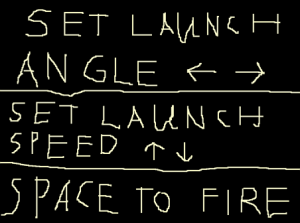 SET LAUNCH
ANGLE ← →
SET LAUNCH
SPEED ↑ ↓
SPACE TO FIRE